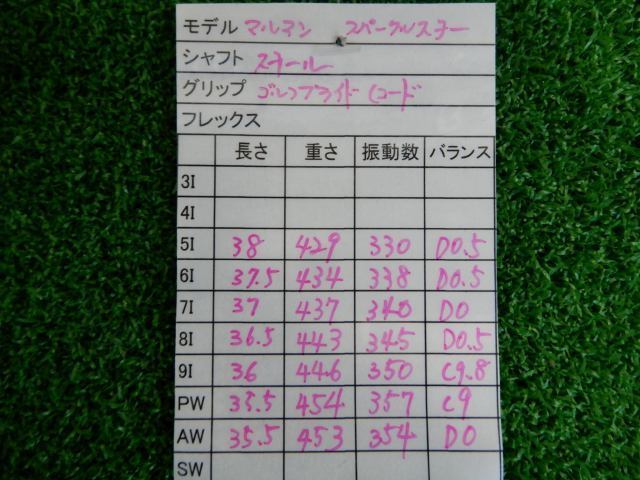 モデル マルマン スパークルスター
シャフト スチール
グリップ ゴルフプライド コード
フレックス
長さ 重さ 振動数 バランス
3I
4I
5I 38 429 330 D0.5
6I 37.5 434 338 D0.5
7I 37 437 340 D0
8I 36.5 443 345 D0.5
9I 36 446 350 C9.8
PW 35.5 454 357 C9
AW 35.5 453 354 D0
SW